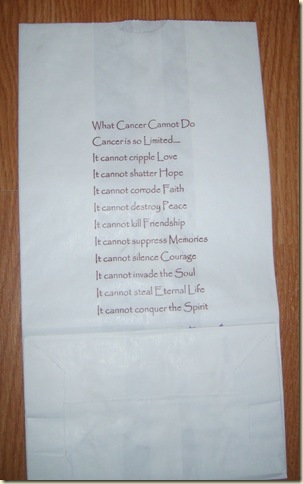 What Cancer Cannot Do
Cancer is so Limited....
It cannot cripple Love
It cannot shatter Hope
It cannot corrode Faith
It cannot destroy Peace
It cannot kill Friendship
It cannot suppress Memories
It cannot silence Courage
It cannot invade the Soul
It cannot steal Eternal Life
It cannot conquer the Spirit